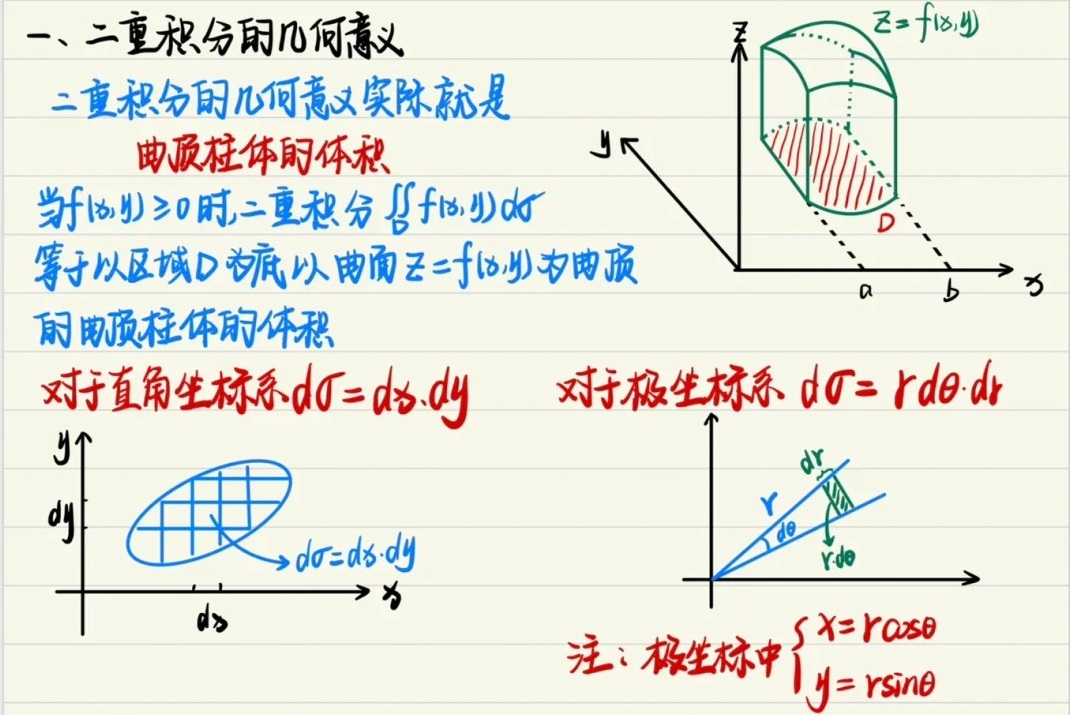 一、二重积分的几何意义
二重积分的几何意义实际就是
曲顶柱体的体积
当f(x,y)≥0时,二重积分∬_D f(x,y)dσ
等于以区域D为底以曲面z=f(x,y)为曲顶
的曲顶柱体的体积
z
z=f(x,y)
y
D
a
b
x
对于直角坐标系dσ=dx·dy
y
dy
dσ=dx·dy
x
dx
对于极坐标系 dσ=rdθ·dr
dr
r
dθ
r·dθ
注：极坐标中{x=rcosθ
y=rsinθ